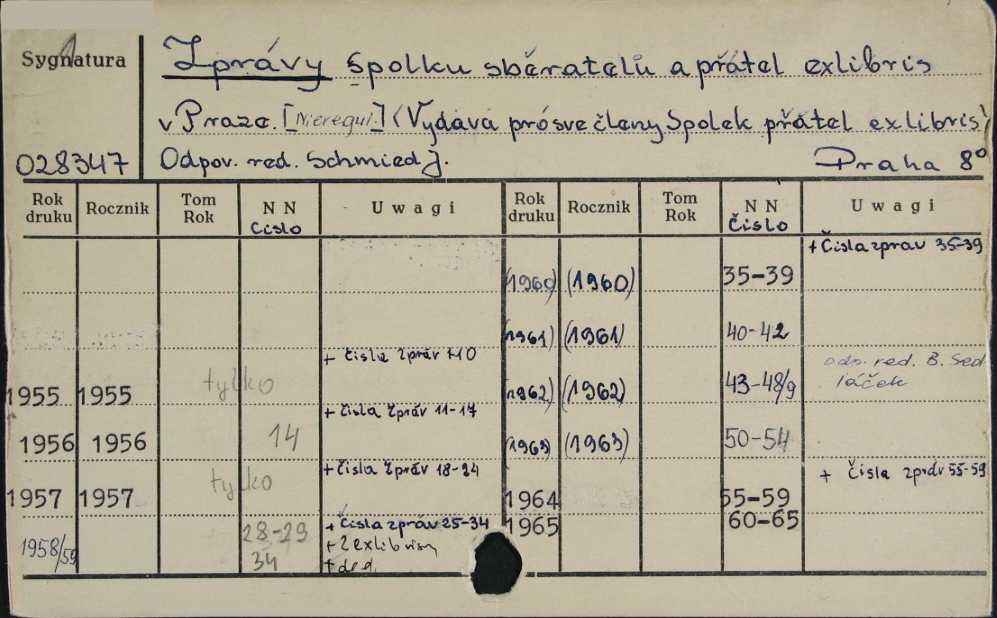 Sygnatura
Zprávy spolku sběratelů a přátel exlibris
v Praze. [Nieregul.] (Vydává prosvé členy Spolek přátel exlibris)
028347 Odpov. red. Schmied J. Praha 8°
Rok druku Rocznik Tom Rok NN Číslo Uwagi Rok druku Rocznik Tom Rok NN Číslo Uwagi
+ Čisla zprav 35-39
(1960) (1960) 35-39
(1961) (1961) 40-42
+ čisla zpráv 1-10
1955 1955 tylko
odp. red. B. Sed
láček
(1962) (1962) 43-48/9
+ čisla zpráv 11-17
1956 1956 14
(1963) (1963) 50-54
+ Čisla zpráv 18-24
1957 1957 tylko
+ čisla zpráv 55-59
1964 55-59
1958/59 28-29
34
+ čisla zpráv 25-34
+ 2 exlibrisy
+ ded.
1965 60-65